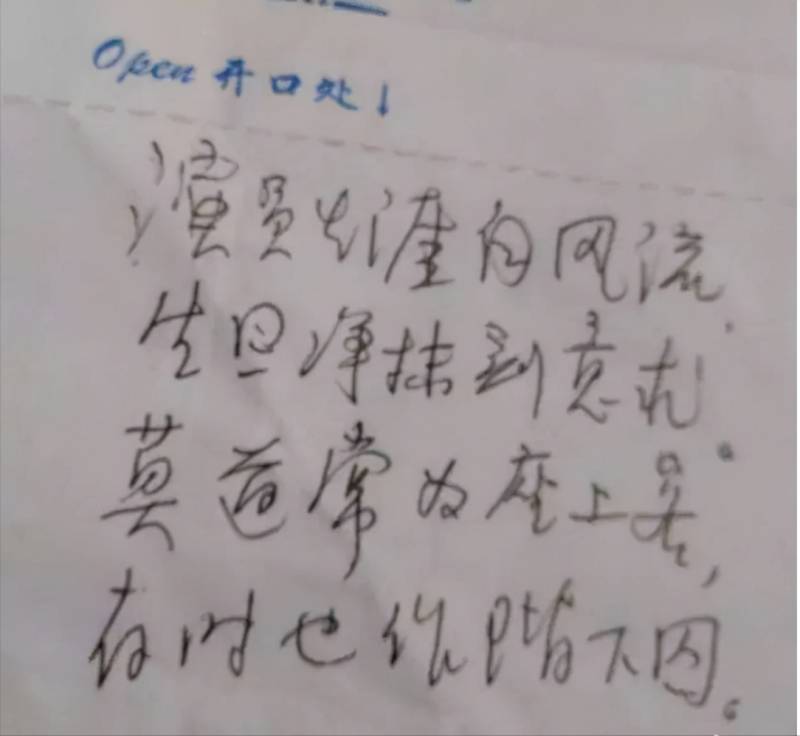 Open 开口处↓
演员生涯自风流,
生旦净抹到意札。
莫道常为座上客,
有时也作阶下囚。